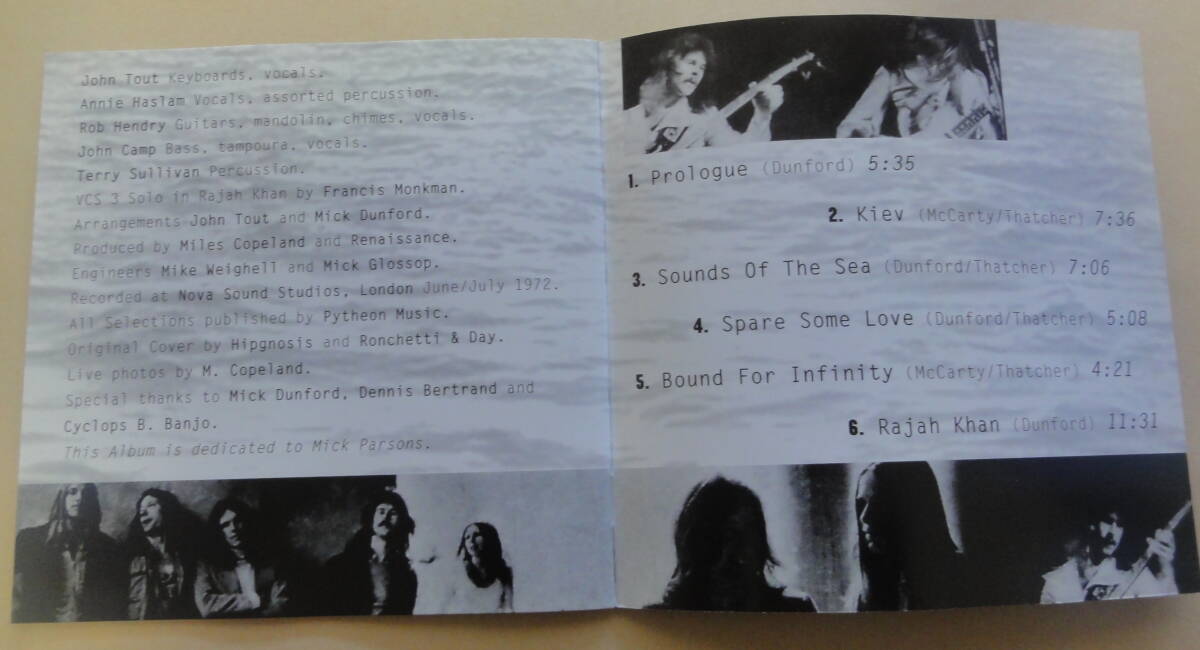 John Tout Keyboards, vocals.
Annie Haslam Vocals, assorted percussion.
Rob Hendry Guitars, mandolin, chimes, vocals.
John Camp Bass, tampoura, vocals.
Terry Sullivan Percussion.
VCS 3 Solo in Rajah Khan by Francis Monkman.
Arrangements John Tout and Mick Dunford.
Produced by Miles Copeland and Renaissance.
Engineers Mike Weighell and Mick Glossop.
Recorded at Nova Sound Studios, London June/July 1972.
All Selections published by Pytheon Music.
Original Cover by Hipgnosis and Ronchetti & Day.
Live photos by M. Copeland.
Special thanks to Mick Dunford, Dennis Bertrand and
Cyclops B. Banjo.
This Album is dedicated to Mick Parsons.
1. Prologue (Dunford) 5:35
2. Kiev (McCarty/Thatcher) 7:36
3. Sounds Of The Sea (Dunford/Thatcher) 7:06
4. Spare Some Love (Dunford/Thatcher) 5:08
5. Bound For Infinity (McCarty/Thatcher) 4:21
6. Rajah Khan (Dunford) 11:31